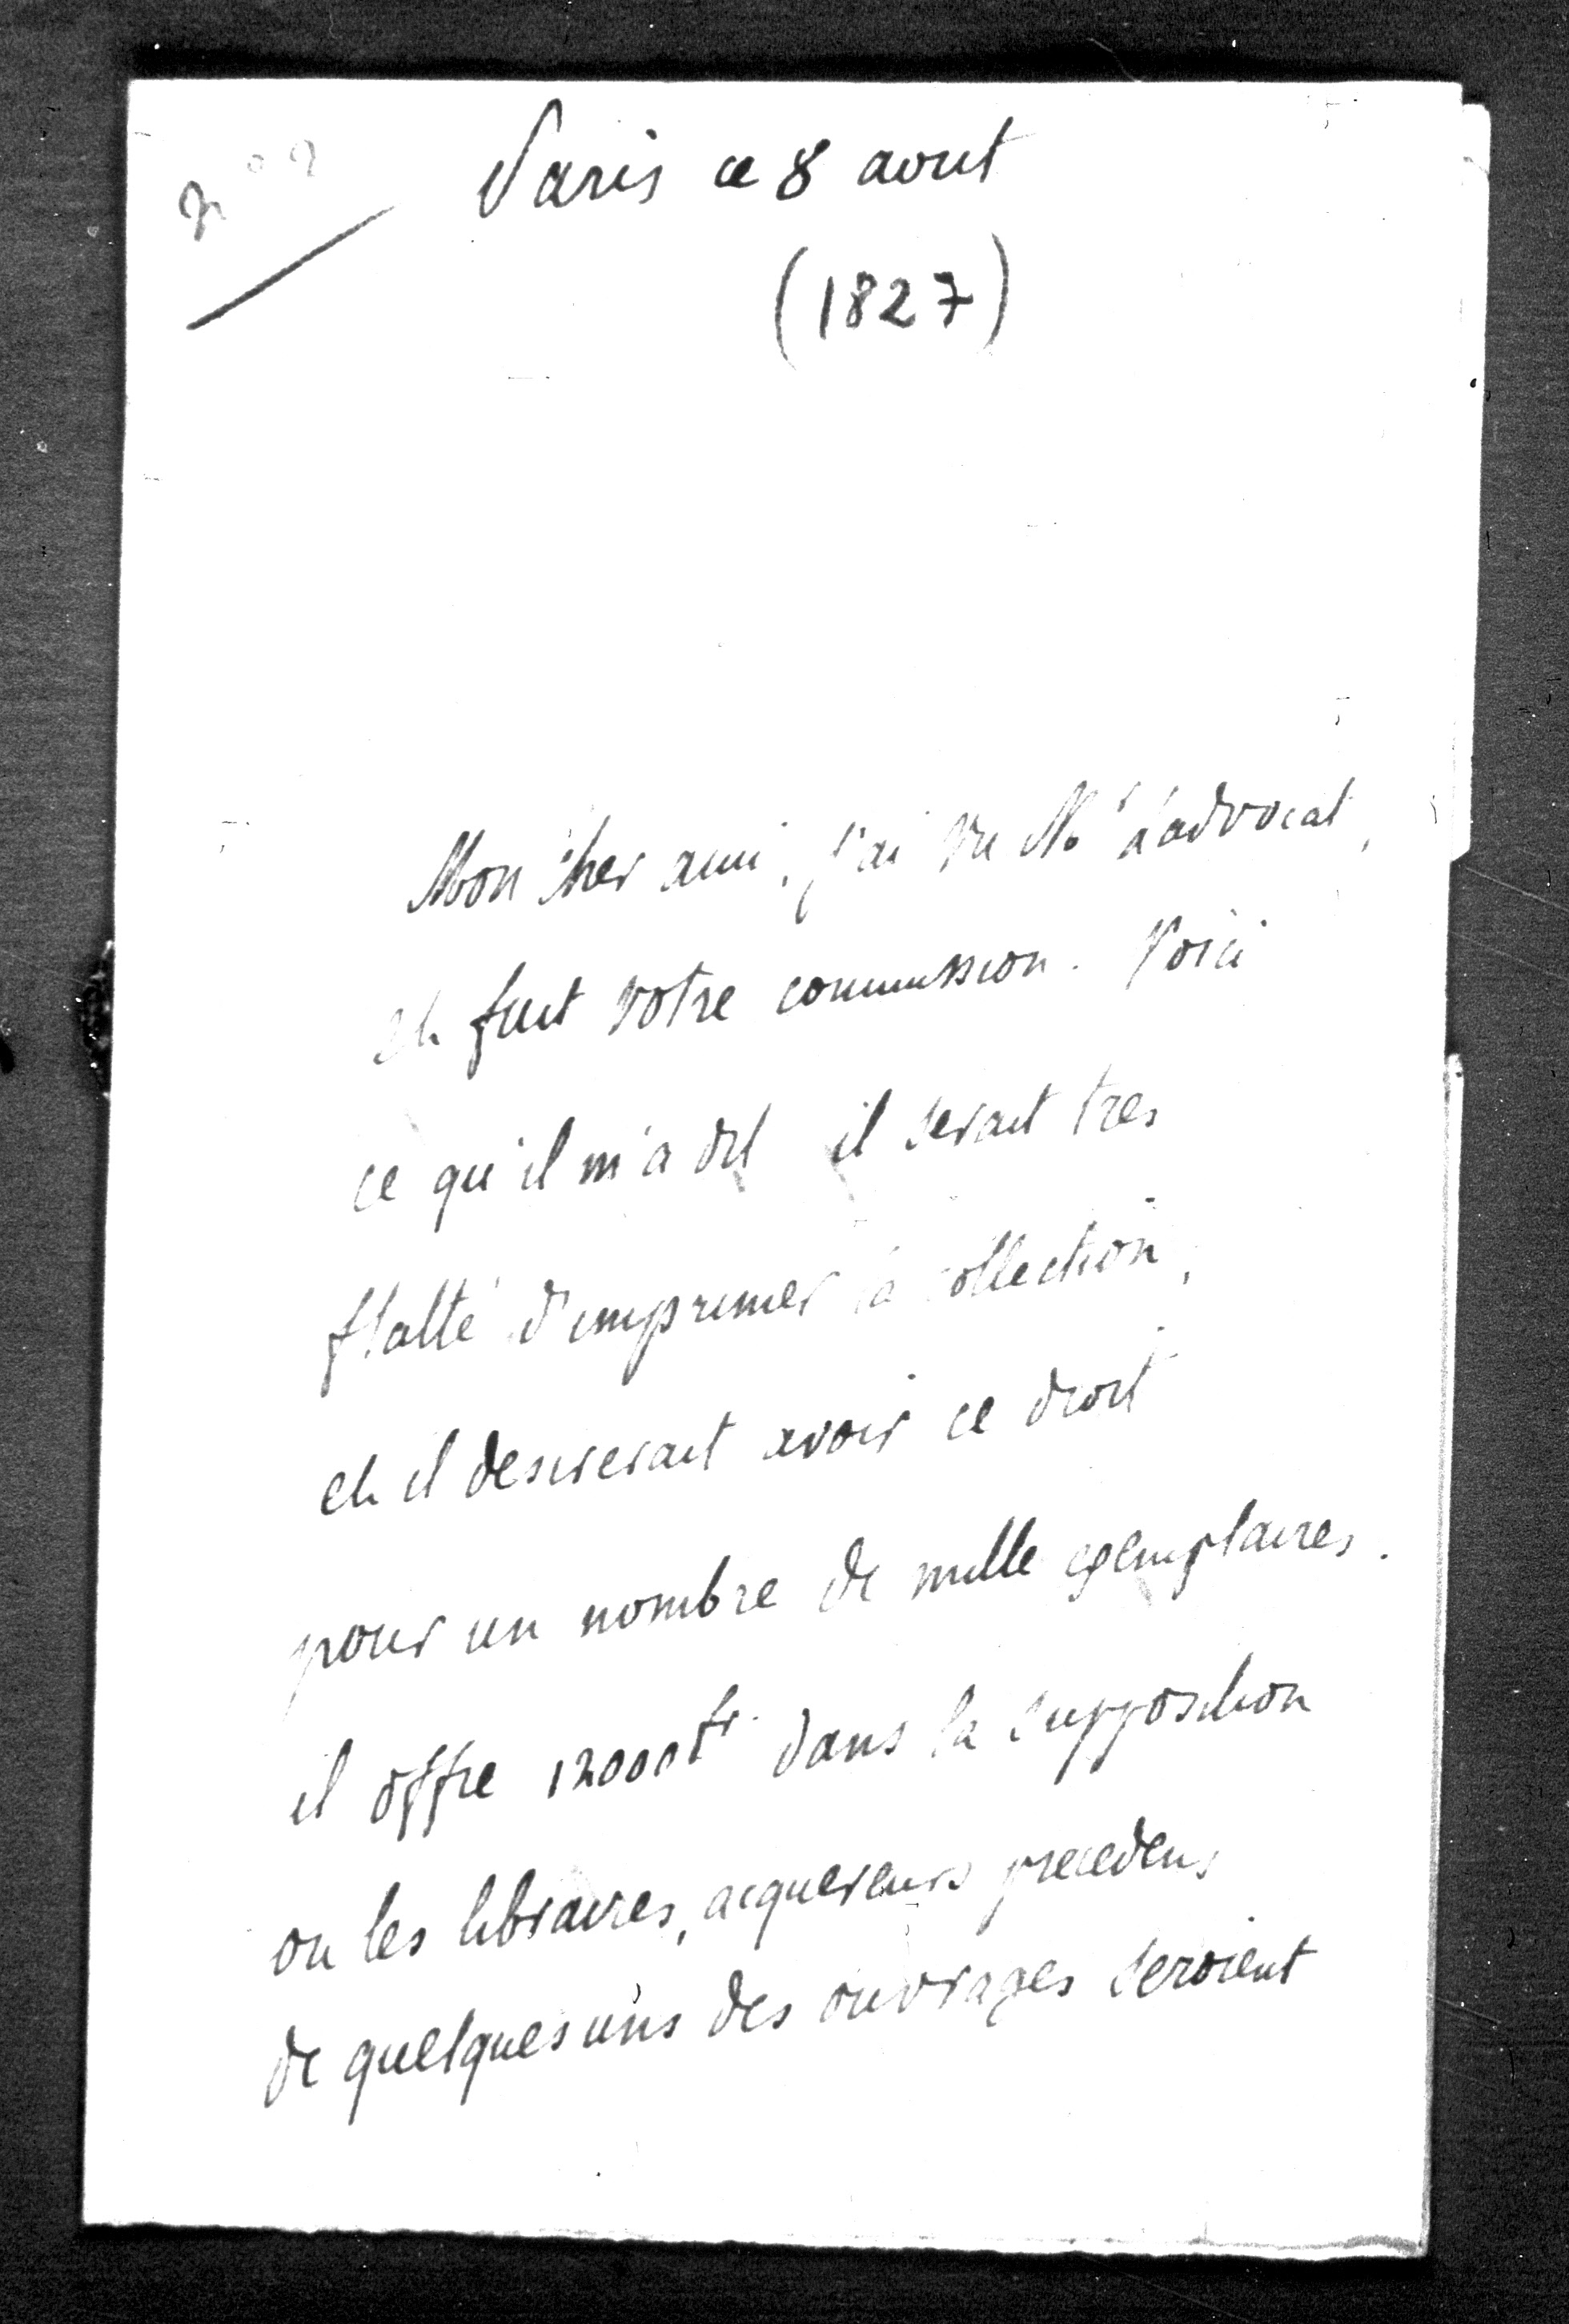 n° 2
Paris ce 8 aout
(1827)
Mon cher ami, j'ai vu Mr Ladvocat,
et fait votre commission. Voici
ce qu'il m'a dit il serait tres
flatté d'imprimer la collection,
et il desirerait avoir ce droit
pour un nombre de mille exemplaires.
il offre 12000 fr. dans la supposition
ou les libraires, acquereurs precedens
de quelques uns des ouvrages seroient